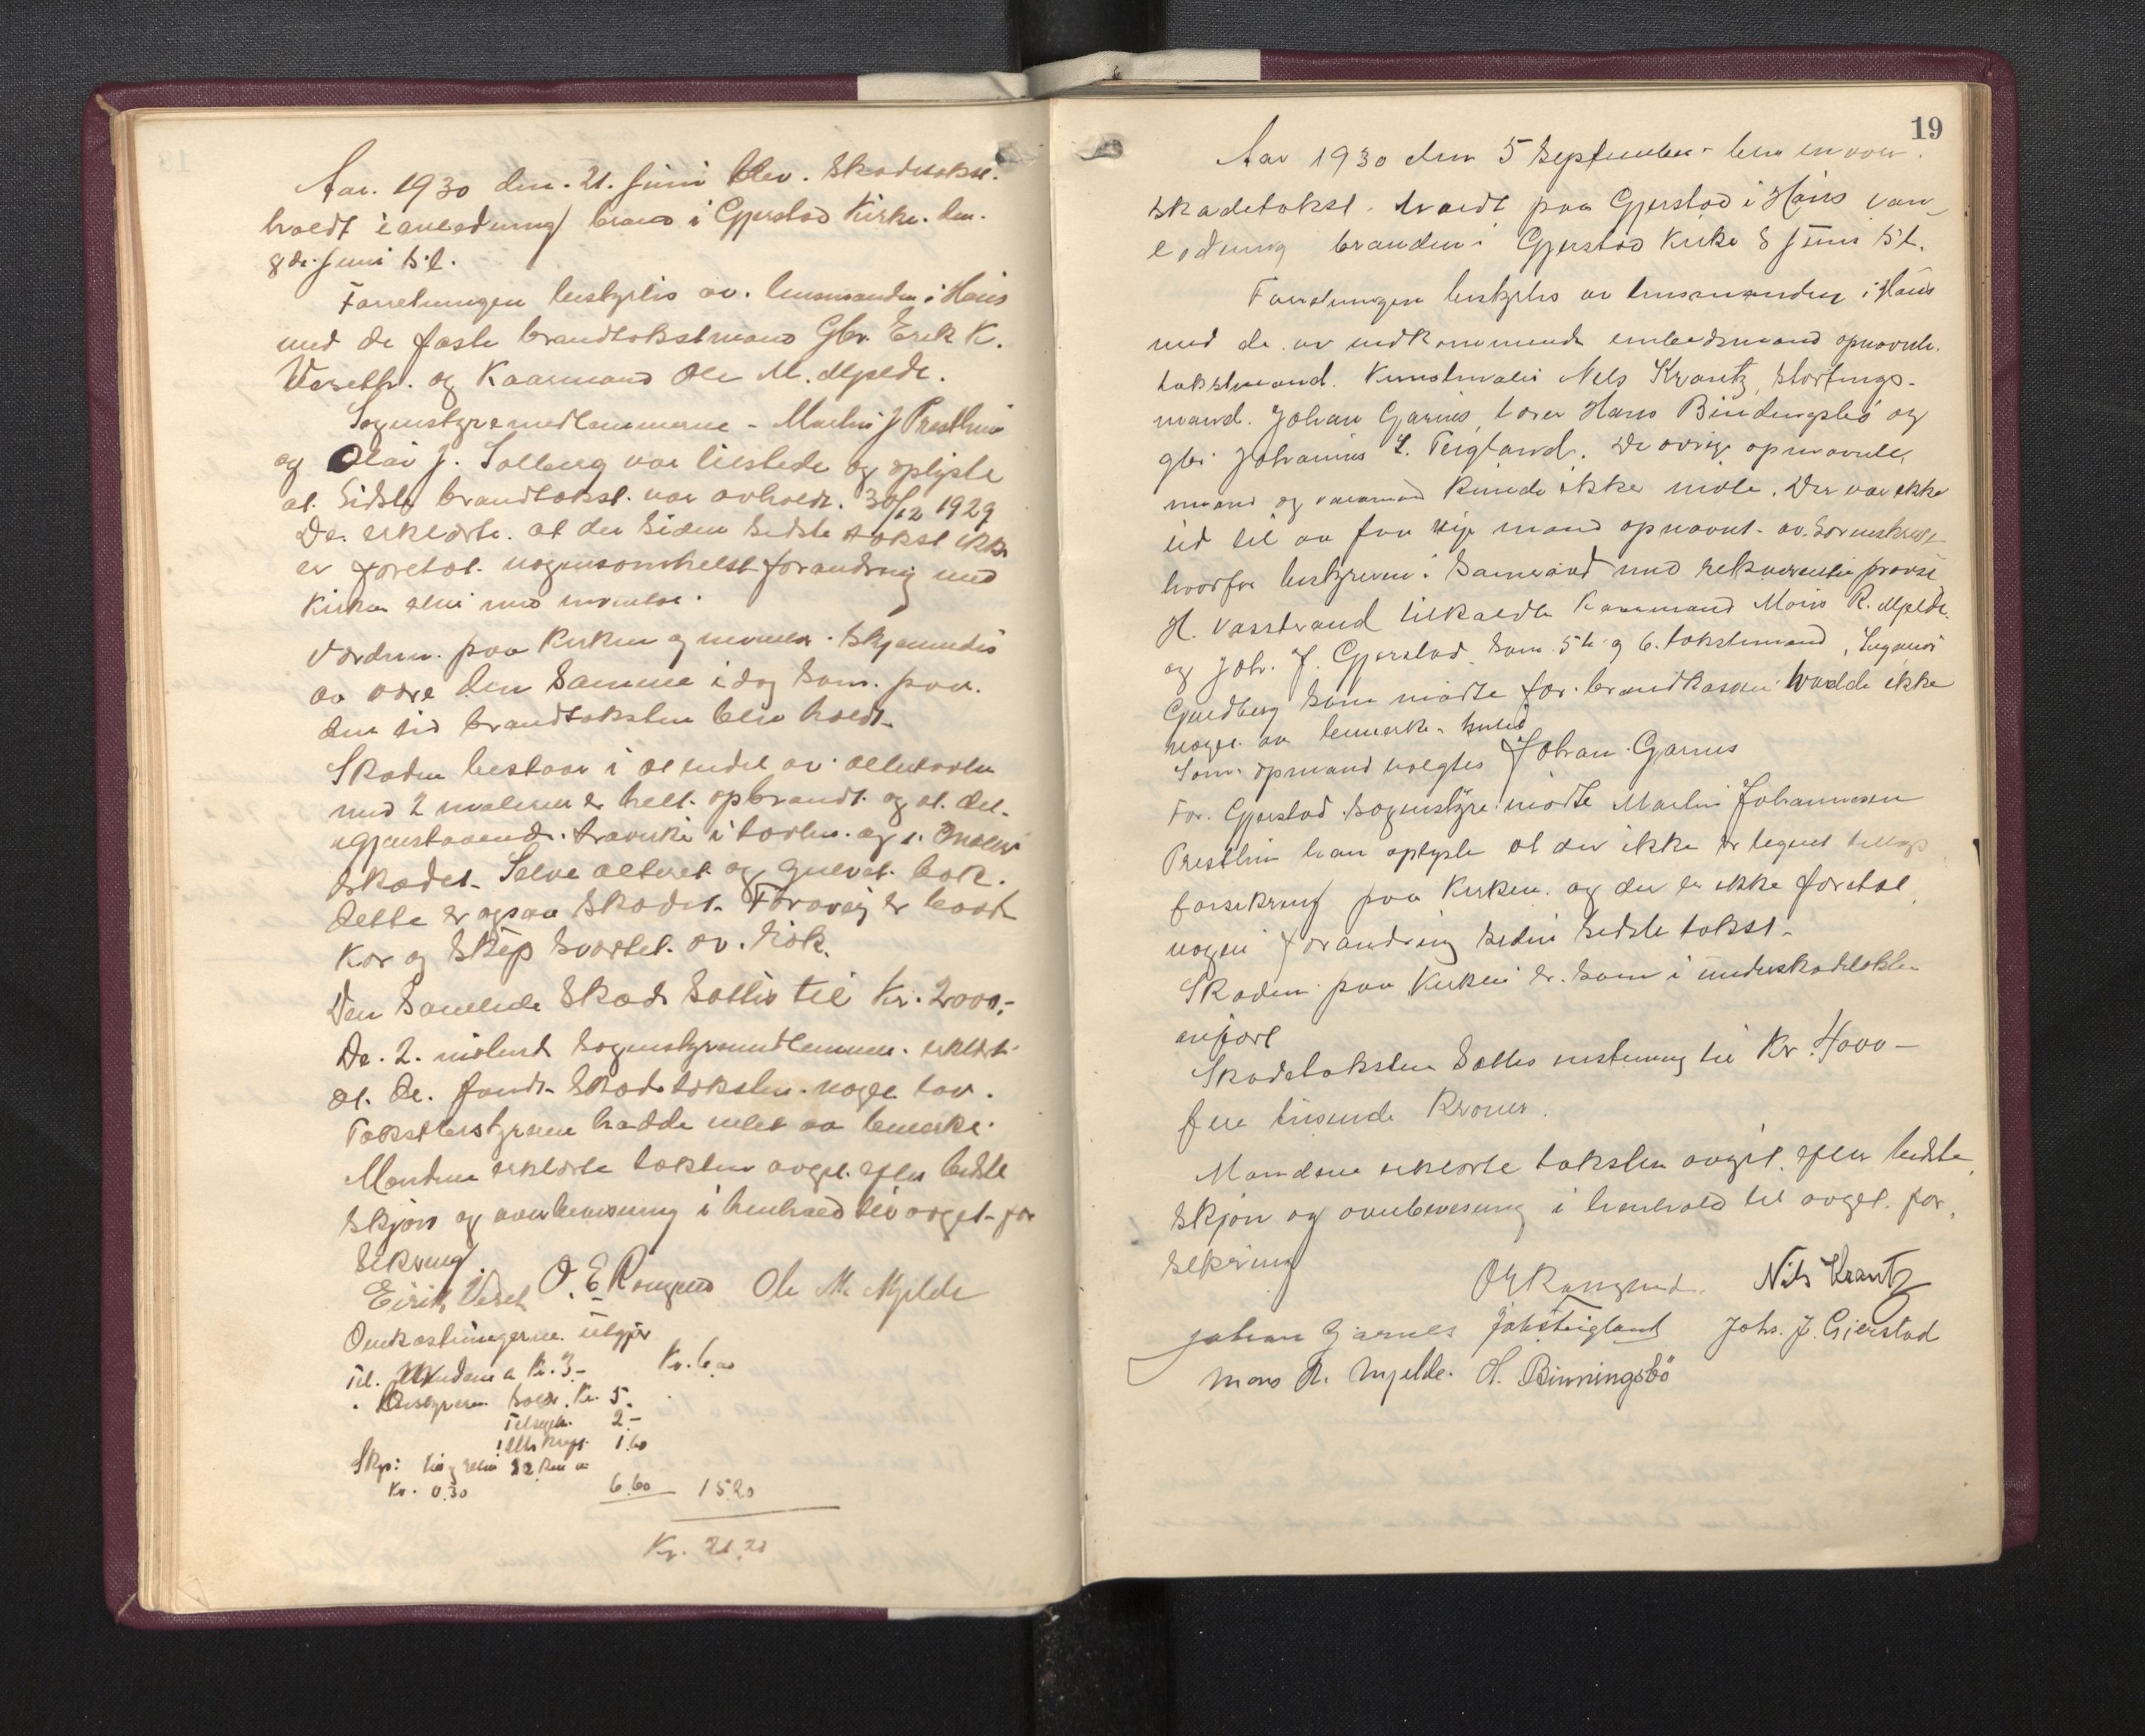 Aar. 1930 den. 21. Juni blev. Skadetakst.
holdt i anledning brand i Gjerstad Kirke. den.
8de. Juni s.l.
Forretningen bestyrtes av. lensmanden i Haus
med de faste brandtakstmænd Gbr. Erik K.
Veseth. og Kaarmand Ole M. Mjelde.
Sognestyremedlemmerne - Martin J Presthun
og Olai J. Solberg var tilstede og oplyste
at. sidste brandtakst. var avholdt. 30/12 1929
De. erklærte. at der siden sidste takst ikke
er foretat. nogensomhelst forandring med
Kirken eller med inventar.
Værdien. paa Kirken og inventar. skjønnedes
aa være den samme i dag som. paa.
den tid brandtaksten blev holdt.
Skaden bestaar i at endel av. altertavlen
med 2 malerier er helt. opbrandt. og at. det.
gjenstaaende. træverk i tavlen. og 1. maleri
skadet. Selve alteret og gulvet. bak.
dette er ogsaa skadet. Forøvrig er baade
Kor og Skip svertet. av. røk.
Den samlede skade sattes til Kr. 2000,-
De. 2. møtende sognestyremedlemmer. erklærte
at. de. fandt. skadetaksten. noget lav.
Takstbestyreren hadde intet aa bemerke.
Mændene erklærte taksten avgit. efter bedste
skjøn og overbevisning i henhold til avget. for
sikring.
Eirik Veset O. E Romsgård Ole M. Mjelde
Omkostningerne. utgjør
Til. Mændene a Kr. 3.- Kr. 6.00
" Bestyreren Kr. 5.
2.-
1.60
Skys: 22 km a
Kr. 0.30 6.60 15.20
Kr. 21.20
19
Aar 1930 den 5 September - blev
skadetakst. holdt paa Gjerstad i Haus i an-
ledning branden i Gjerstad Kirke 8 Juni s.l.
Forretningen bestyrtes av lensmanden i Haus
med de av vedkommende embedsmand opnævnte.
takstmænd. Kunstmaler Nils Krantz, Stortings-
mand. Johan Garnes, lærer Hans Binningsbø og
gbr. Johannes L. Teigland. De øvrige opnævnte,
mænd og varamænd kunde ikke møte. Der var ikke
tid til aa faa nye mænd opnævnt. av. Sorenskriver
hvorfor bestyreren i samraad med rekvirenten provst
H. Vasstrand tilkaldte Kaarmand Mons R. Mjelde.
og Joh. J. Gjerstad som. 5te og 6. takstmand, Ingeniør
Guldberg som møtte for. brandkassen hadde ikke
noget aa bemerke.
Som. opmand valgtes Johan Garnes
For. Gjerstad. sognestyre. møtte Martin Johannessen
Presthun han oplyste at der ikke er tegnet tillægs
forsikring paa Kirken. og der er ikke foretat
nogen forandring siden sidste takst.
Skaden. paa Kirken er. som i underskadetakst
anført
Skadetaksten sattes enstemmig til Kr. 4000 -
fire tusende Kroner.
Mændene erklærte taksten avgit. efter bedste
skjøn og overbevisning i henhold til avget. for,
sikring
O E Romsgård. Nils Krantz
Johan Garnes Joh. Teigland Johs. J. Gjerstad
Mons R. Mjelde. H. Binningsbø